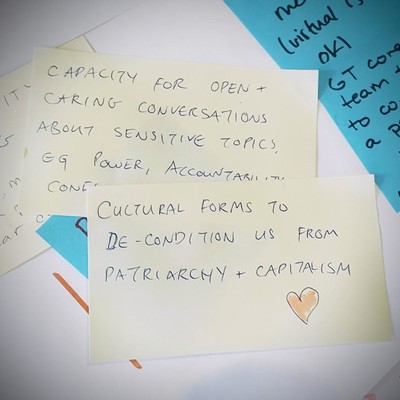 CAPACITY FOR OPEN +
CARING CONVERSATIONS
ABOUT SENSITIVE TOPICS,
EG POWER, ACCOUNTABILITY
CULTURAL FORMS TO
DE-CONDITION US FROM
PATRIARCHY + CAPITALISM
(virtual is
ok)
GT core
team
to
a